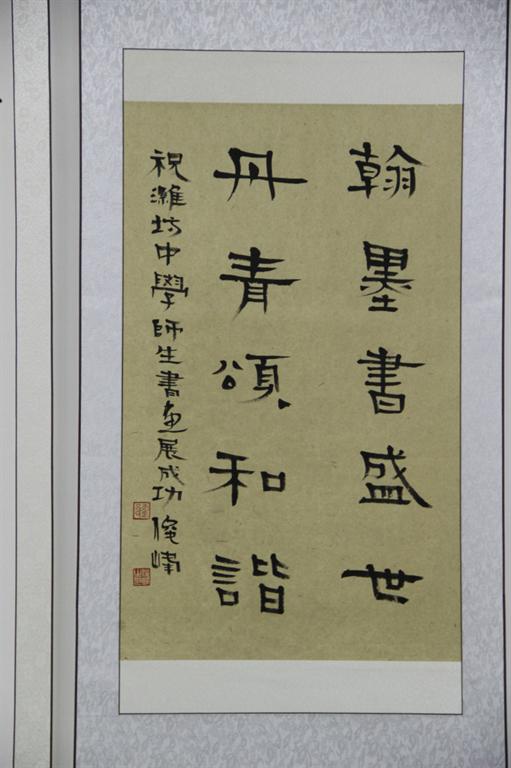 翰墨書盛世
丹青頌和諧
祝濰坊中學師生書畫展成功 俊峰